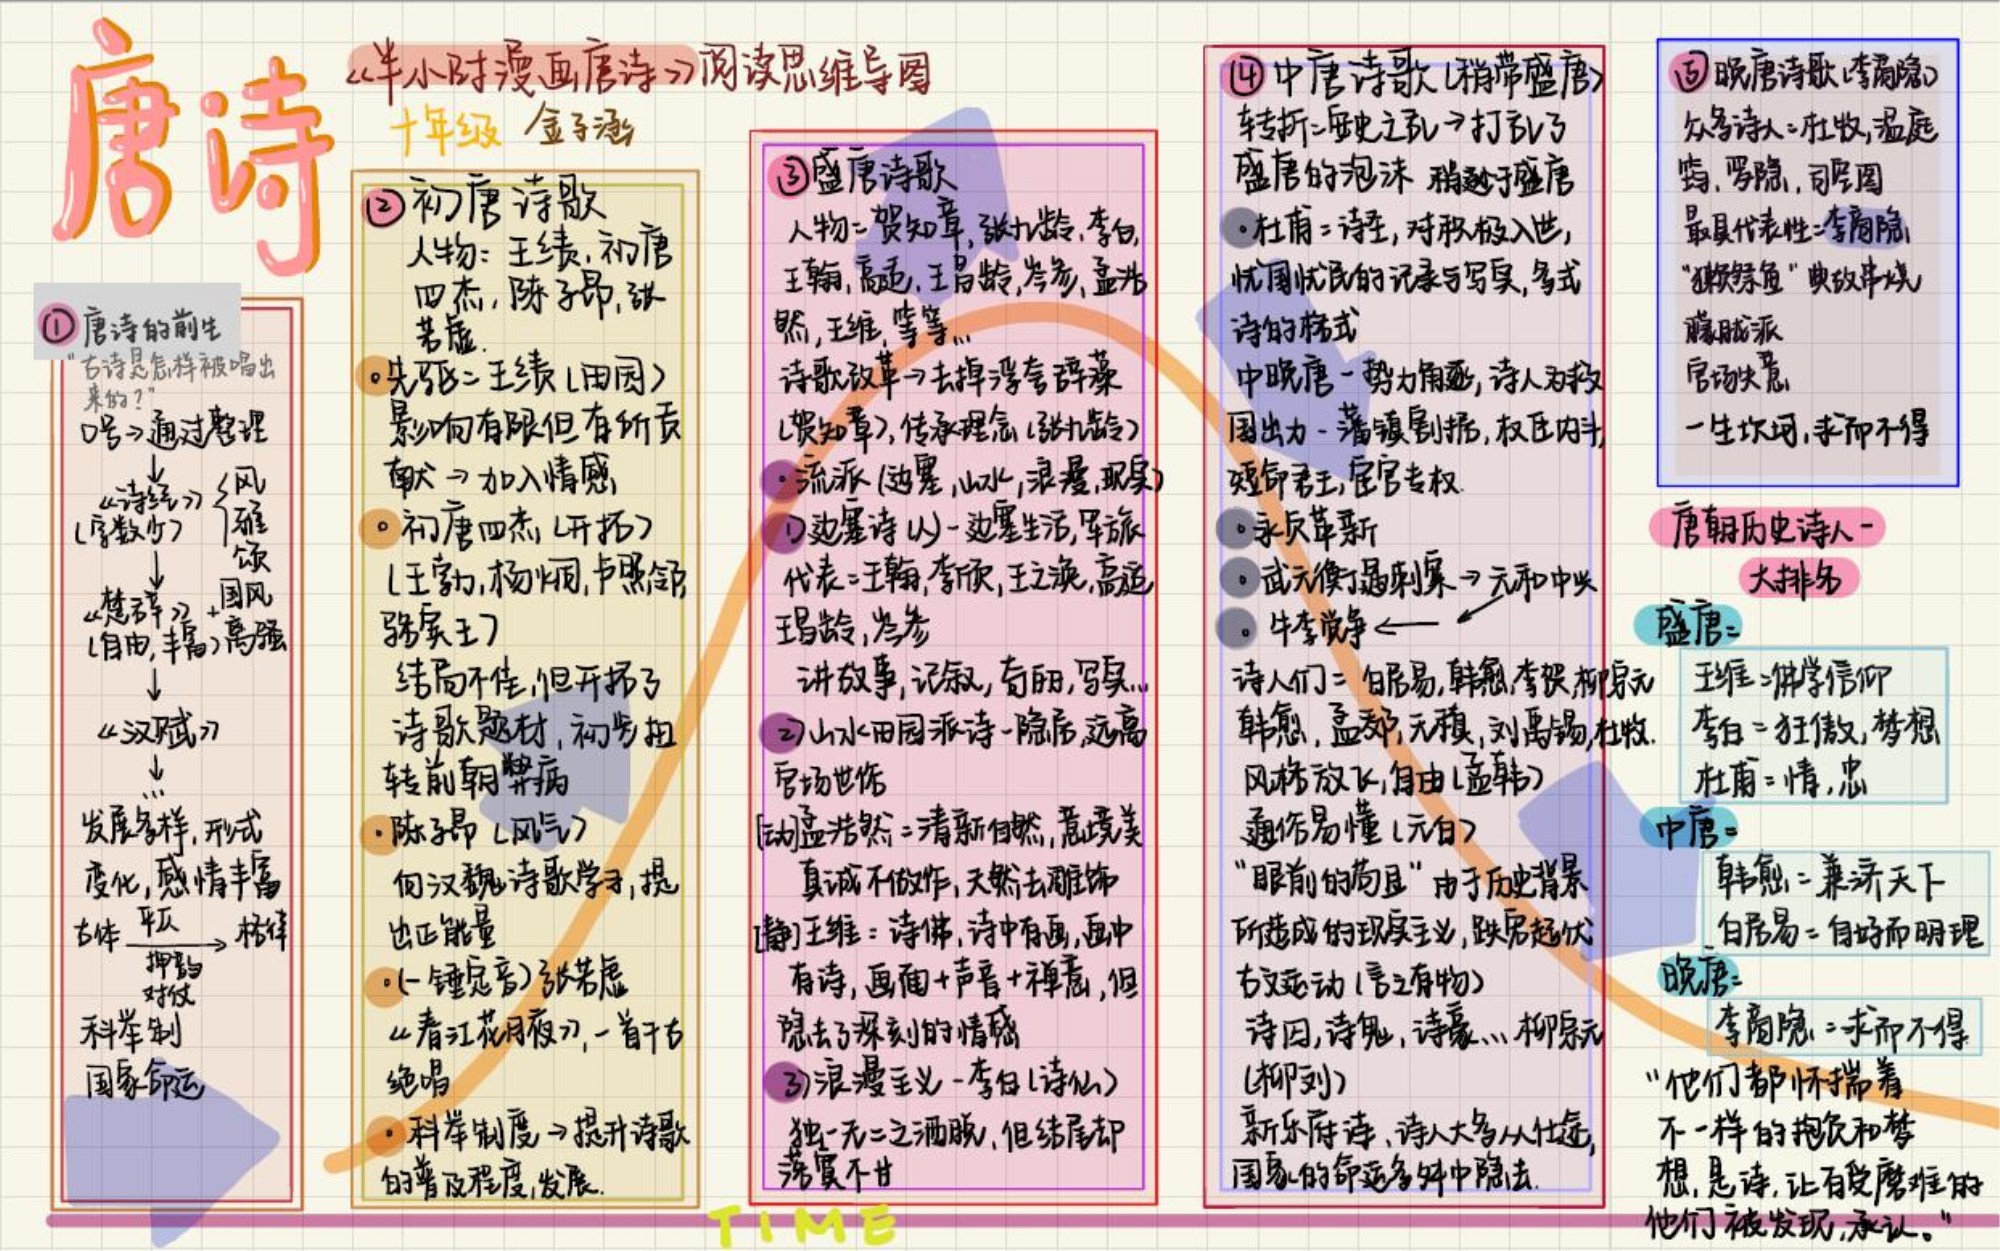 唐诗
《半小时漫画唐诗》阅读思维导图
十年级 金子涵
① 唐诗的前生
"古诗是怎样被唱出
来的?"
口号→通过整理
↓
《诗经》{风
(字数少) 雅
颂
↓
《楚辞》+国风
(自由,丰富)离骚
↓
《汉赋》
↓
...
发展多样,形式
变化,感情丰富
古体 平仄 → 格律
押韵
对仗
科举制
国家命运
② 初唐诗歌
人物:王绩,初唐
四杰,陈子昂,张
若虚.
·先驱=王绩(田园)
影响有限但有所贡
献→加入情感
·初唐四杰(开拓)
(王勃,杨炯,卢照邻,
骆宾王)
结局不佳,但开拓了
诗歌题材,初步扭
转前朝弊病
·陈子昂(风气)
向汉魏诗歌学习,提
出正能量
·(一锤定音)张若虚
《春江花月夜》,一首千古
绝唱
·科举制度→提升诗歌
的普及程度,发展.
③ 盛唐诗歌
人物=贺知章,张九龄,李白,
王翰,高适,王昌龄,岑参,孟浩
然,王维,等等...
诗歌改革→去掉浮夸辞藻
(贺知章),传承理念(张九龄)
·流派(边塞,山水,浪漫,现实)
1)边塞诗(人)-边塞生活,军旅
代表=王翰,李欣,王之涣,高适
王昌龄,岑参
讲故事,记叙,奇丽,写实...
2)山水田园派诗-隐居,远离
官场世俗
[动]孟浩然=清新自然,意境美
真诚不做作,天然去雕饰
[静]王维=诗佛,诗中有画,画中
有诗,画面+声音+禅意,但
隐去了深刻的情感
3)浪漫主义-李白(诗仙)
独一无二之洒脱,但结尾却
落寞不甘
④ 中唐诗歌(稍带盛唐)
转折=安史之乱→打乱了
盛唐的泡沫 稍逊于盛唐
·杜甫=诗圣,对积极入世,
忧国忧民的记录与写实,多式
诗的格式
中晚唐-势力角逐,诗人为救
国出力-藩镇割据,权臣内斗,
短命君王,宦官专权.
·永贞革新
·武元衡遇刺案→元和中兴
·牛李党争←
诗人们=白居易,韩愈,李贺,柳宗元
韩愈,孟郊,元稹,刘禹锡,杜牧.
风格放飞,自由(孟韩)
通俗易懂(元白)
"眼前的苟且"由于历史背景
所造成的现实主义,跌宕起伏
古文运动(言之有物)
诗囚,诗鬼,诗豪...柳宗元
(柳刘)
新乐府诗,诗人大多从仕途,
国家的命运多舛中隐去.
⑤ 晚唐诗歌(李商隐)
众多诗人=杜牧,温庭
筠,罗隐,司空图
最具代表性=李商隐
"獭祭鱼"典故串烧
朦胧派
官场失意
一生坎坷,求而不得
唐朝历史诗人-
大排名
盛唐=
王维=佛学信仰
李白=狂傲,梦想
杜甫=情,忠
中唐=
韩愈=兼济天下
白居易=自好而明理
晚唐=
李商隐=求而不得
"他们都怀揣着
不一样的抱负和梦
想,是诗,让有受磨难的
他们被发现,承认。"
TIME